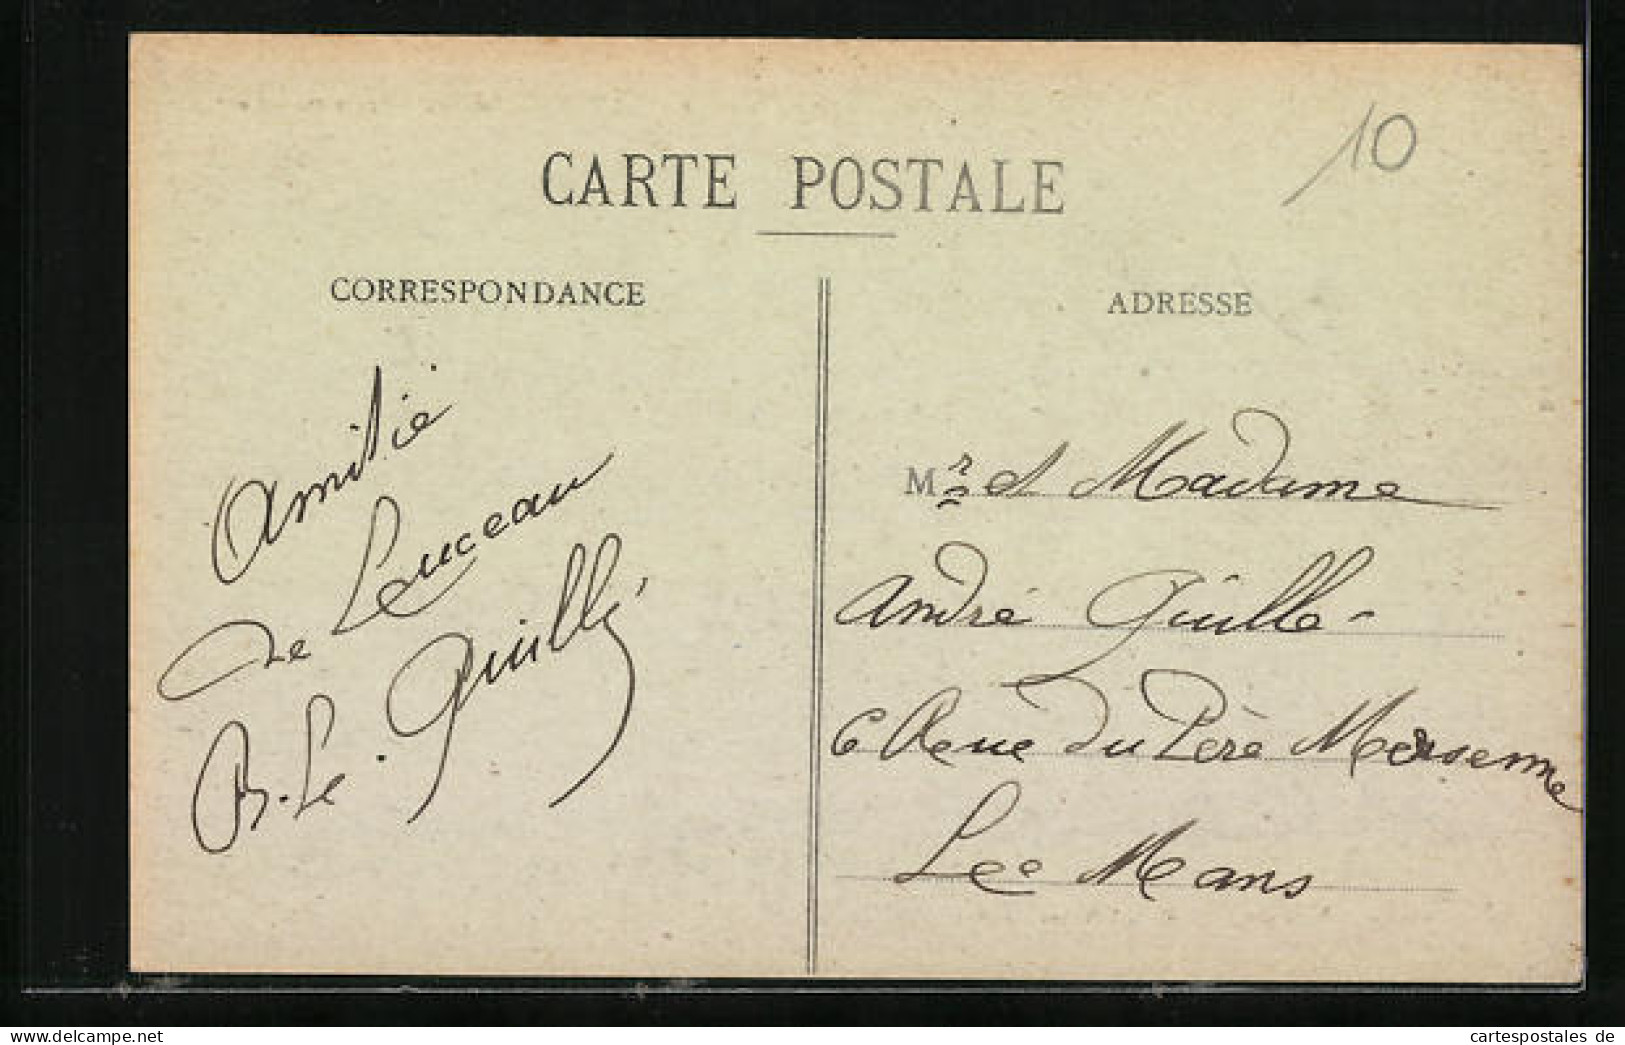 10
CARTE POSTALE
CORRESPONDANCE
Amitié
de Luceau
B. Le Guillé
ADRESSE
Mr et Madame
André Guillé
6 Rue du Père Mersenne
Le Mans
cartespostales de